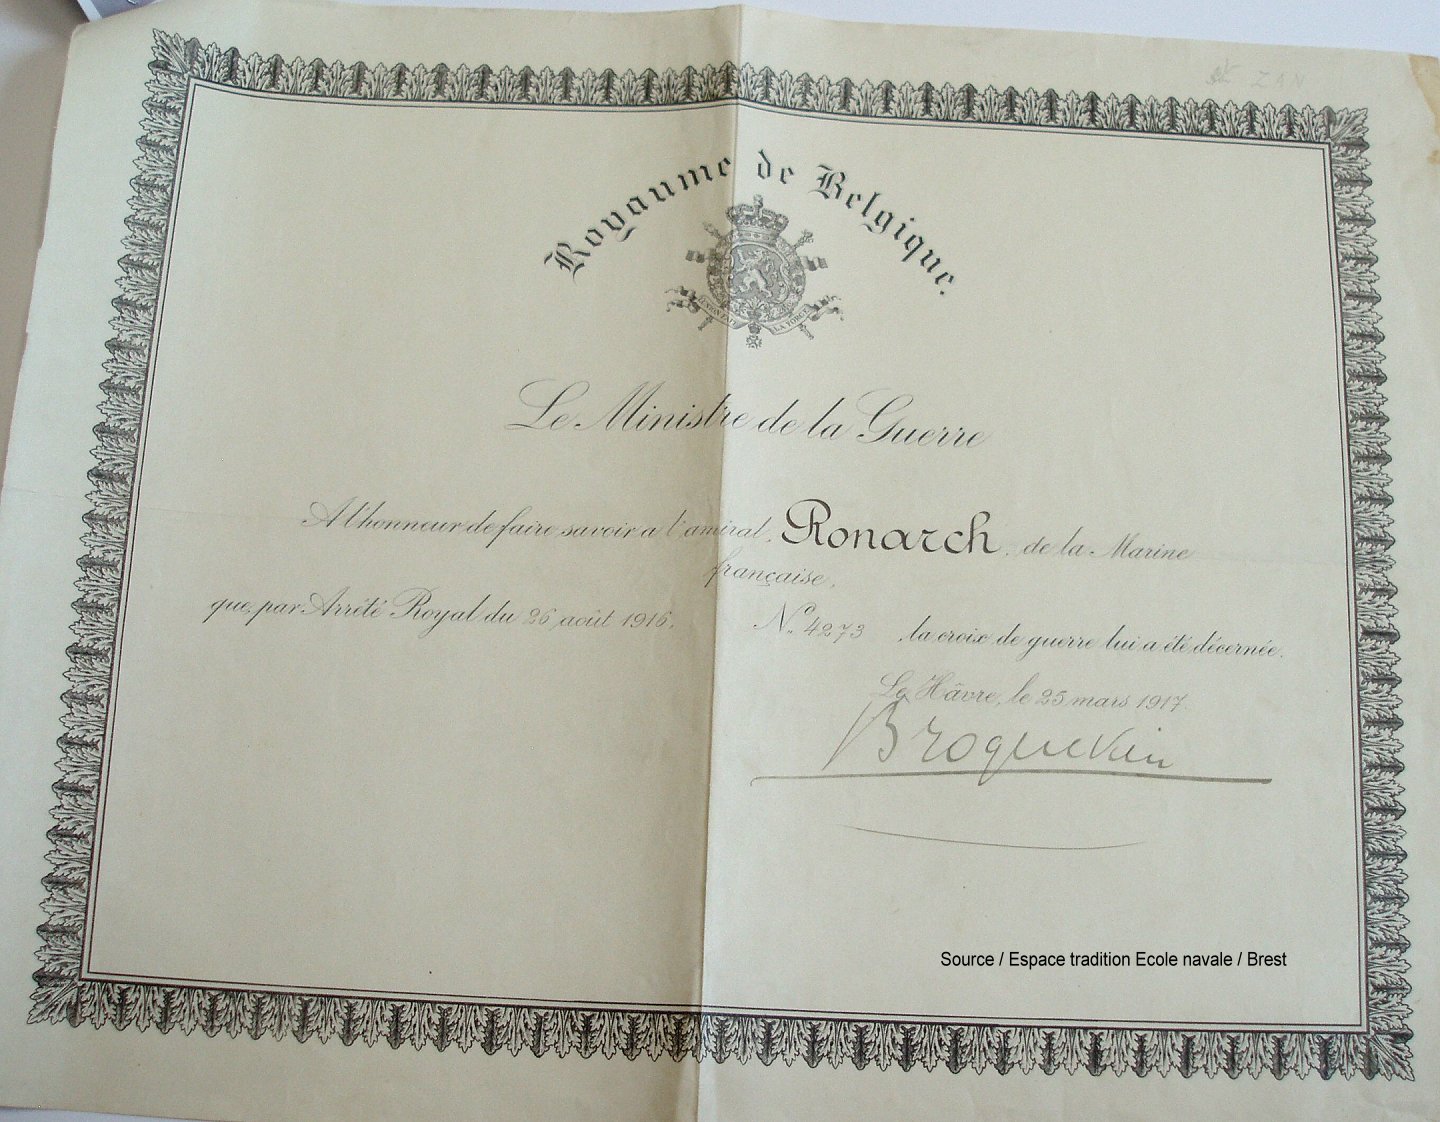 ZAN
Royaume de Belgique.
L'UNION FAIT LA FORCE
Le Ministre de la Guerre
A l'honneur de faire savoir a l'amiral, Ronarch, de la Marine
française,
que, par Arrêté Royal du 26 août 1916, N.° 4273, la croix de guerre lui a été décernée.
Le Hâvre, le 25 mars 1917.
Broqueville
Source / Espace tradition Ecole navale / Brest